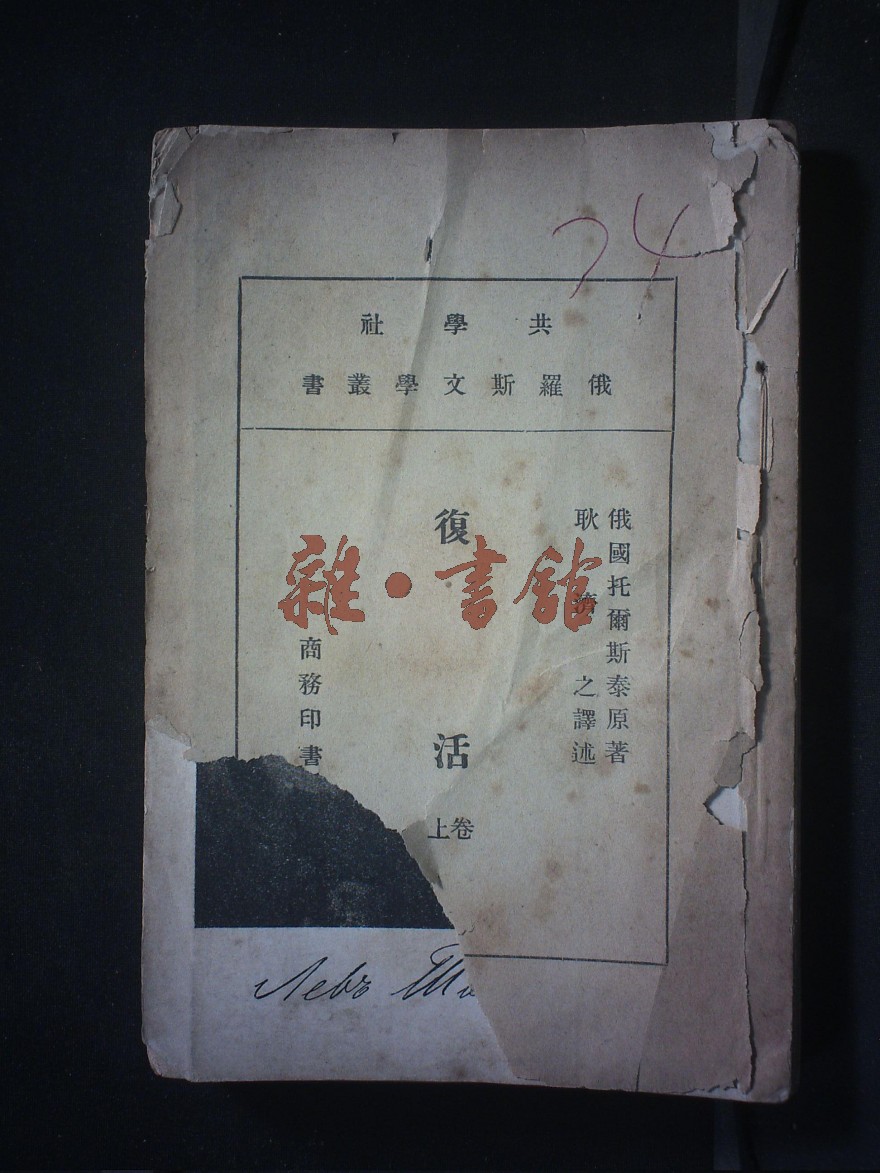 共學社
俄羅斯文學叢書
俄國托爾斯泰原著
耿濟之譯述
復活
卷上
商務印書
雜·書館
74
Левъ То